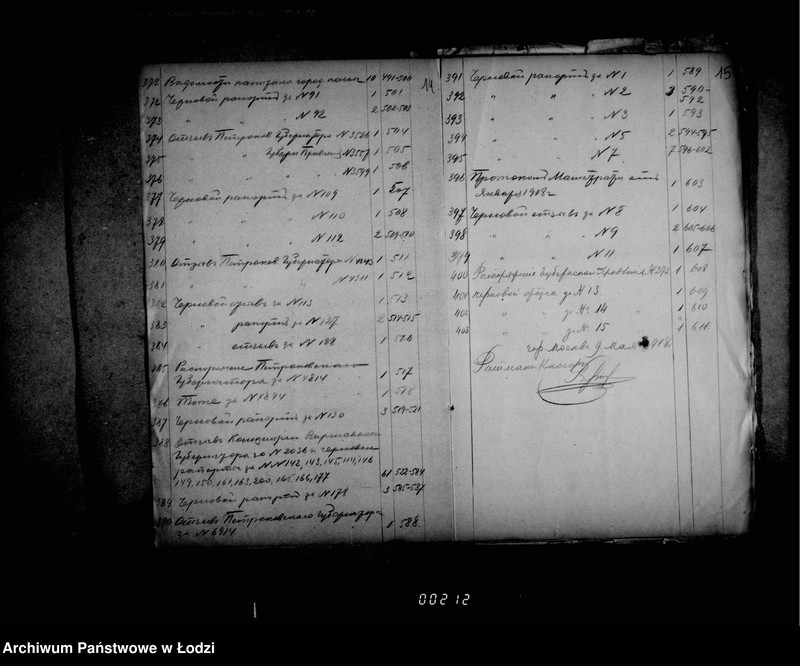 14
372 Ведомости 10 491-500
372 Черновой рапорт за №91 1 501
373 " " №92 2 502-503
374 Отзывъ Петроков Губернатора №3526 1 504
375 " Губерн Правлен №3557 1 505
376 " " №3599 1 506
377 Черновой рапортъ за №109 1 507
378 " " №110 1 508
379 " " №112 2 509-510
380 Отзывъ Петроков Губернатора №4243 1 511
381 " " №4311 1 512
382 Черновой отзывъ за №113 1 513
383 " рапортъ за №127 2 514-515
384 " отзывъ за №128 1 516
385 Распоряжение Петроковского
Губернатора за №4814 1 517
386 Тоже за №4844 1 518
387 Черновой рапортъ за №130 3 519-521
388 Отзывъ Канцелярии Варшавскаго
Губернатора за №2036 и черновые
рапорты за №№142, 143, 145, 144, 146
149, 150, 161, 163, 200, 165, 166, 177 61 522-584
389 Черновой рапортъ за №178 3 585-587
390 Отзывъ Петроковского Губернатора
за №6914 1 588
15
391 Черновой рапортъ за №1 1 589
392 " " №2 3 590-
592
393 " " №3 1 593
394 " " №5 2 594-595
395 " " №7 7 596-602
396 Протоколъ Магистрата
Января 1918 г 1 603
397 Черновой отзывъ за №8 1 604
398 " " №9 2 605-606
399 " " №11 1 607
400 Распоряжение Губернскаго Правления №372 1 608
401 Черновой отпуск за №13 1 609
402 " " за №14 1 610
403 " " за №15 1 611
гор. Москва 9 Мая 1918
00212
Archiwum Państwowe w Łodzi